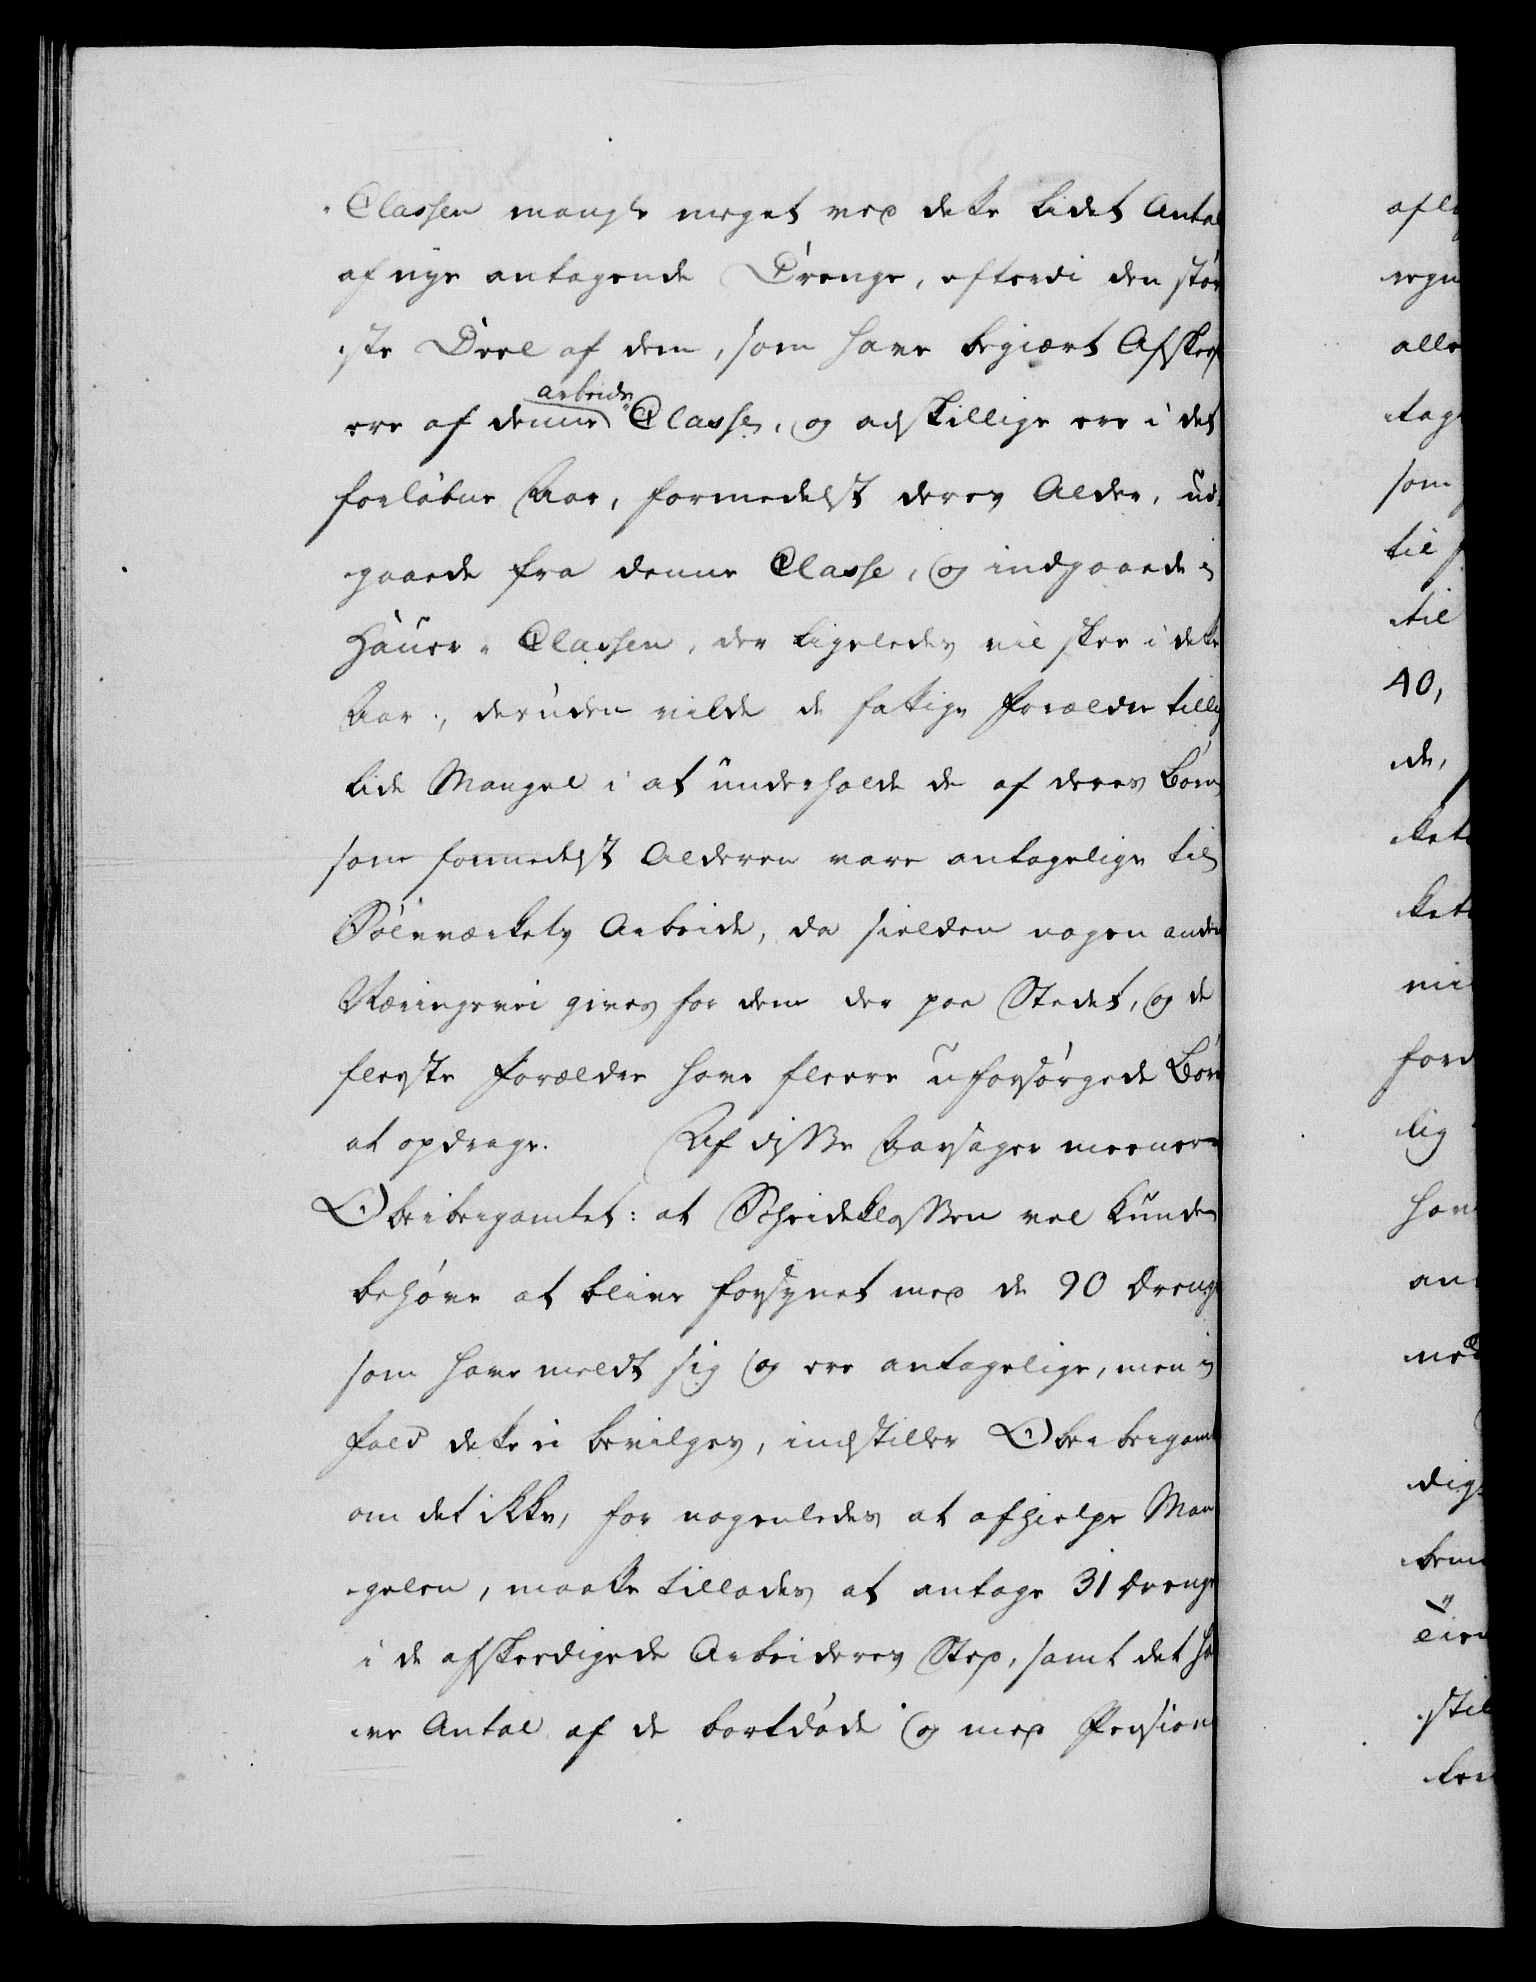 Classen mangle meget ved dette lidet Antal
af nye antagende Drenge, efterdi den stør
ste Deel af dem, som have begiært Afskeed
ere af denne arbeids Classe, og adskillige ere i det
forløbne Aar, formedelst deres Alder, ud
gaaede fra denne Classe, og indgaaede i
Häuer-Classen, der ligeledes vil skee i dette
Aar, desuden vilde de fattige Forældre tillig
lide Mangel i at underholde de af deres Børn
som formedelst Alderen vare antagelige til
Sölvværkets Arbeide, da sielden nogen anden
Næringsvei gives for dem der paa Stedet, og de
fleeste Forældre have fleere uforsørgede Børn
at opdrage. Af disse Aarsager meener
Oberbergamtet: at Scheideklassen vel kunde
behøve at blive forsynet med de 90 Drenge
som have meldt sig og ere antagelige, men i
fald dette ei bevilges, indstiller Oberbergamtet
om det ikke, for nogenledes at afhielpe Man
gelen, maatte tillades at antage 31 Drenge
i de afskedigede Arbeideres Sted, samt det ha
ve Antal af de bortdøde og med Pension
afl
regn
alle
tag
som
til
til
40,
de,
ket
ket
mi
ford
lig
hav
an
med
dig
bem
eien
stil